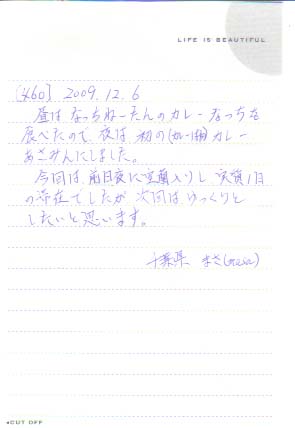 LIFE IS BEAUTIFUL
[460] 2009.12.6
昼は なっちねーたんのカレー なっちを
食べたので、夜は 初の カレー
あさみんにしました。
今回は、前日夜に室蘭入りし 実質1日
の滞在でしたが 次回は ゆっくりと
したいと思います。
千葉県 まさ(masa)
◂CUT OFF